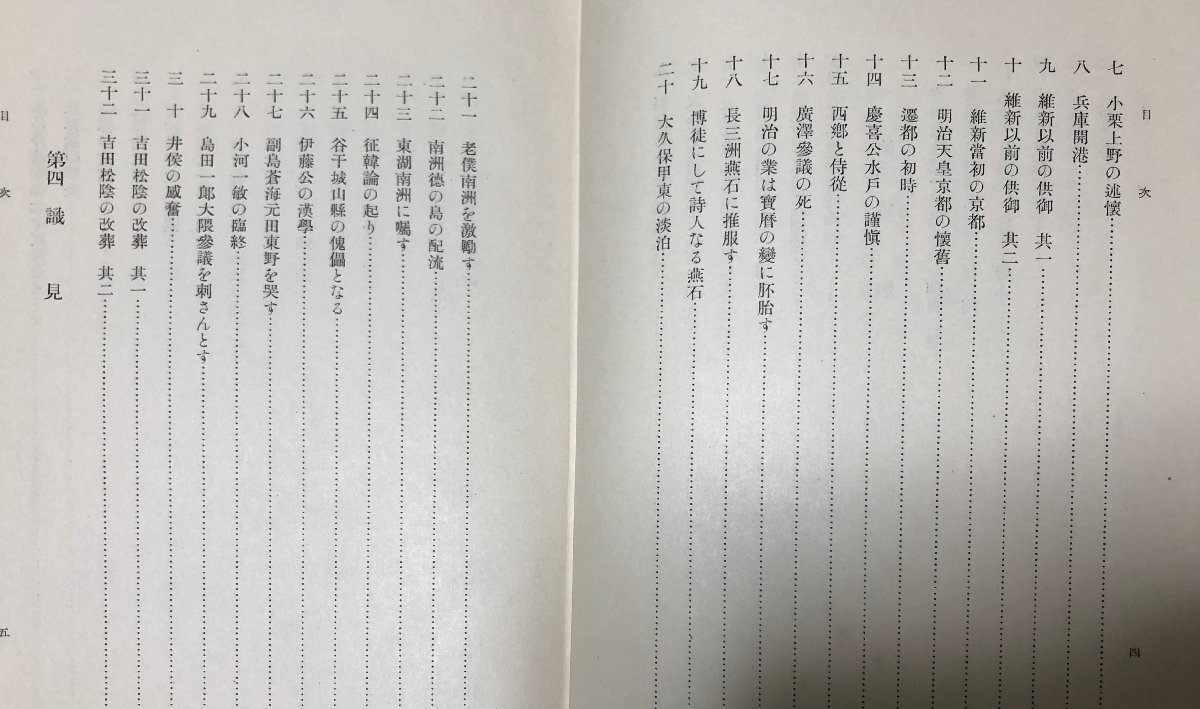 目次
七 小栗上野の述懷
八 兵庫開港
九 維新以前の供御 其一
十 維新以前の供御 其二
十一 維新當初の京都
十二 明治天皇京都の懷舊
十三 遷都の初時
十四 慶喜公水戸の謹愼
十五 西鄕と侍從
十六 廣澤參議の死
十七 明治の業は寶曆の變に胚胎す
十八 長三洲燕石に推服す
十九 博徒にして詩人なる燕石
二十 大久保甲東の淡泊
四
二十一 老僕南洲を激勵す
二十二 南洲德の島の配流
二十三 東湖南洲に囑す
二十四 征韓論の起り
二十五 谷干城山縣の傀儡となる
二十六 伊藤公の漢學
二十七 副島蒼海元田東野を哭す
二十八 小河一敏の臨終
二十九 島田一郞大隈參議を刺さんとす
三十 井侯の感奮
三十一 吉田松陰の改葬 其一
三十二 吉田松陰の改葬 其二
第四 識見
目次
五